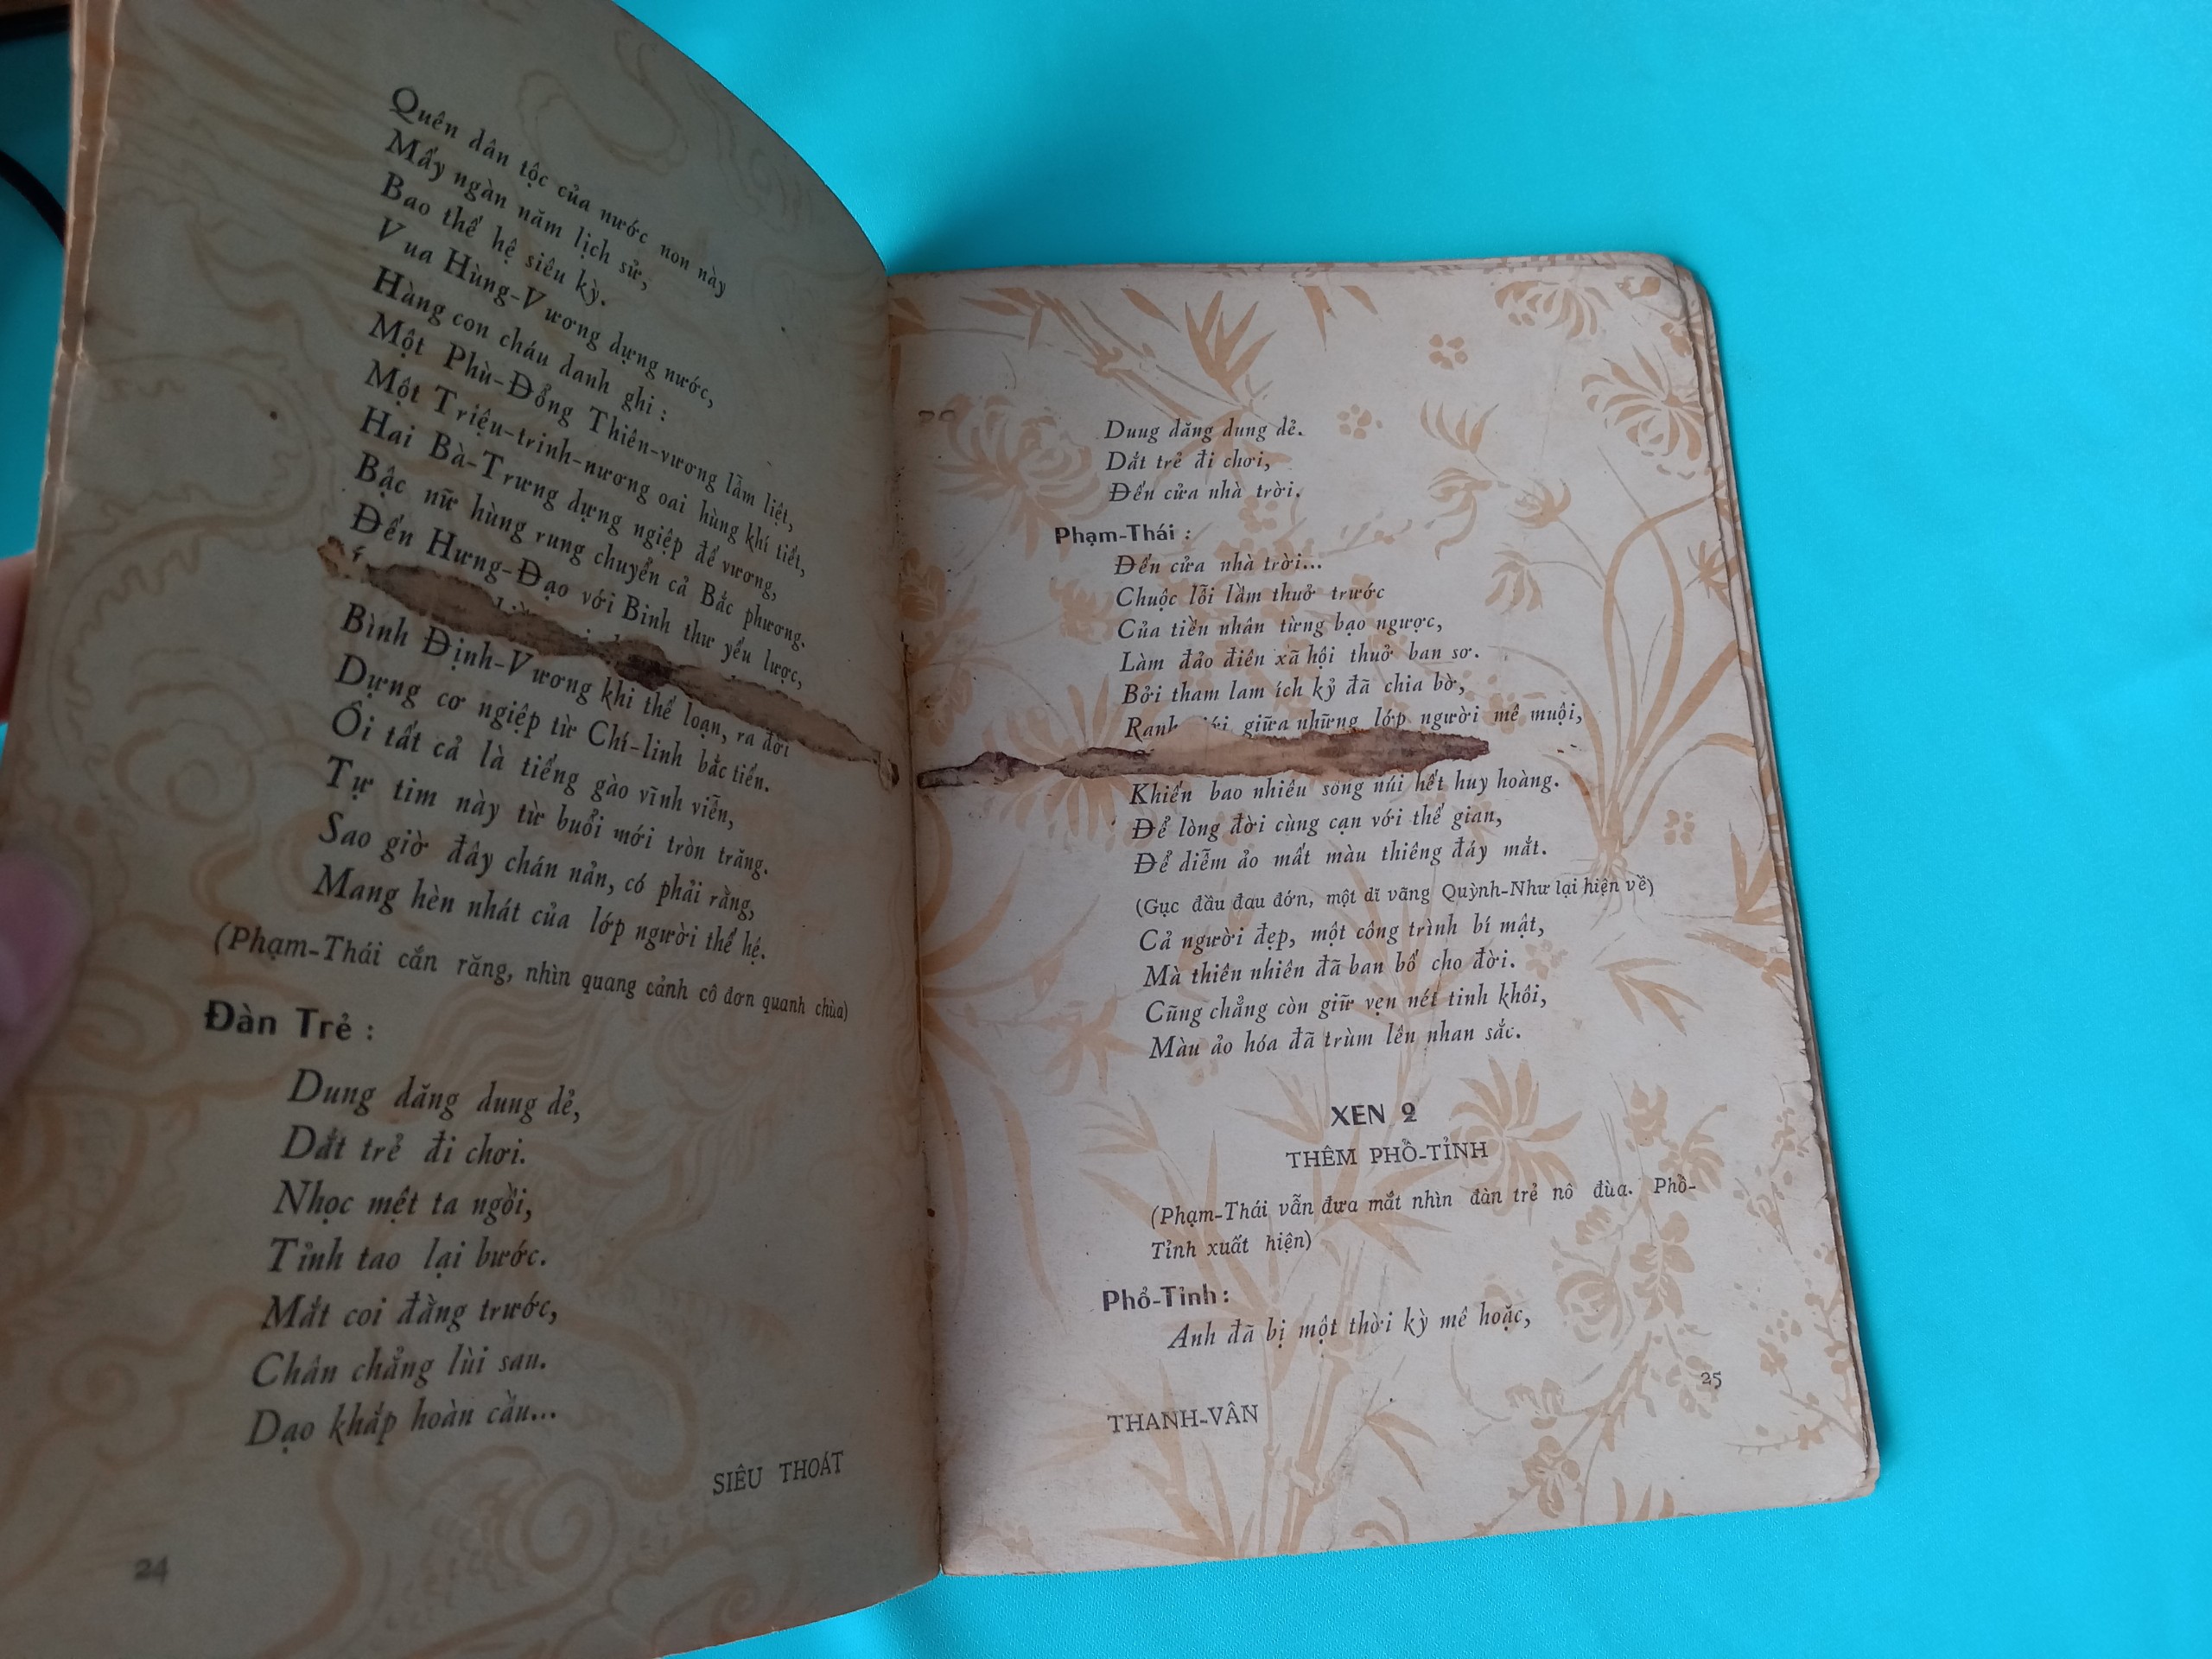 Quên dân tộc của nước non này
Mấy ngàn năm lịch sử,
Bao thế hệ siêu kỳ.
Vua Hùng-Vương dựng nước,
Hàng con cháu danh ghi :
Một Phù-Đổng Thiên-vương lẫm liệt,
Một Triệu-trinh-nương oai hùng khí tiết,
Hai Bà-Trưng dựng ngiệp đế vương,
Bậc nữ hùng rung chuyển cả Bắc phương.
Đến Hưng-Đạo với Binh thư yếu lược,
Bình Định-Vương khi thế loạn, ra đời
Dựng cơ ngiệp từ Chí-linh bắc tiến.
Ôi tất cả là tiếng gào vĩnh viễn,
Tự tim này từ buổi mới tròn trăng.
Sao giờ đây chán nản, có phải rằng,
Mang hèn nhát của lớp người thế hệ.
(Phạm-Thái cắn răng, nhìn quang cảnh cô đơn quanh chùa)
Đàn Trẻ :
Dung dăng dung dẻ,
Dắt trẻ đi chơi.
Nhọc mệt ta ngồi,
Tỉnh tao lại bước.
Mắt coi đằng trước,
Chân chẳng lùi sau.
Dạo khắp hoàn cầu...
SIÊU THOÁT
24
Duug dăng dung dẻ.
Dắt trẻ đi chơi,
Đến cửa nhà trời.
Phạm-Thái :
Đến cửa nhà trời...
Chuộc lỗi lầm thuở trước
Của tiền nhân từng bạo ngược,
Làm đảo điên xã hội thuở ban sơ.
Bởi tham lam ích kỷ đã chia bờ,
giữa những lớp người mê muội,
Khiến bao nhiêu sông núi hết huy hoàng.
Để lòng đời cùng cạn với thế gian,
Để diễm ảo mất màu thiêng đáy mắt.
(Gục đầu đau đớn, một dĩ vãng Quỳnh-Như lại hiện về)
Cả người đẹp, một công trình bí mật,
Mà thiên nhiên đã ban bố cho đời.
Cũng chẳng còn giữ vẹn nét tinh khôi,
Màu ảo hóa đã trùm lên nhan sắc.
XEN 2
THÊM PHỔ-TỈNH
(Phạm-Thái vẫn đưa mắt nhìn đàn trẻ nô đùa. Phổ-
Tỉnh xuất hiện)
Phổ-Tỉnh :
Anh đã bị một thời kỳ mê hoặc,
25
THANH-VÂN